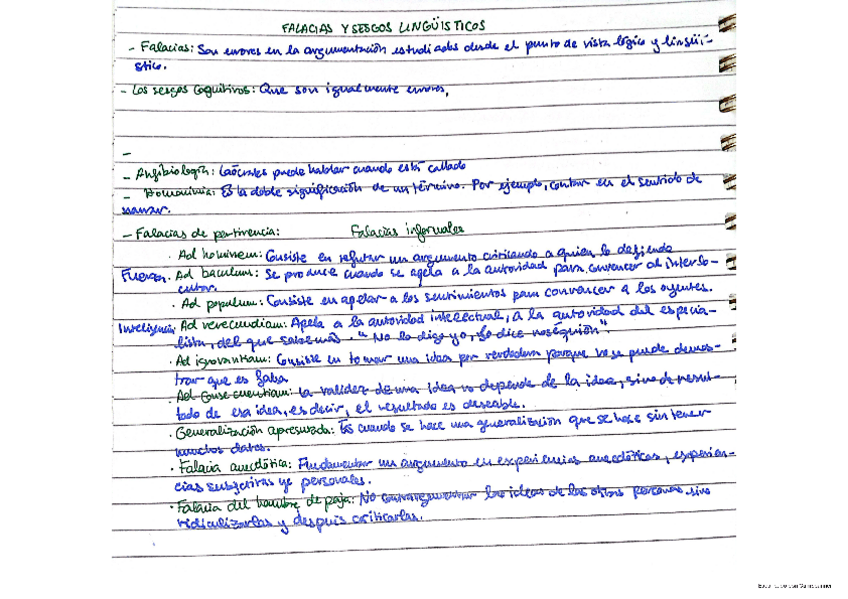 FALACIAS Y SESGOS LINGÜISTICOS
- Falacias: Son errores en la argumentación estudiados desde el punto de vista lógico y lingüí-
stico.
- Los sesgos cognitivos: Que son igualmente errores,
-
- Anfibiología: Sócrates puede hablar cuando está callado
- Homonimia: Es la doble significación de un término. Por ejemplo, contar en el sentido de
narrar.
- Falacias de pertinencia: Falacias informales
· Ad hominem: Consiste en refutar un argumento criticando a quien lo defiende
Fuerza · Ad baculum: Se produce cuando se apela a la autoridad para convencer al interlo-
cutor.
· Ad populum: Consiste en apelar a los sentimientos para convencer a los oyentes.
Inteligencia · Ad verecundiam: Apela a la autoridad intelectual, a la autoridad del especia-
lista, del que sabe más. "No lo digo yo, lo dice noséquién".
· Ad ignorantiam: Consiste en tomar una idea por verdadera porque no se puede demos-
trar que es falsa
· Ad consecuentiam: La validez de una idea no depende de la idea, sino de resul-
tado de esa idea, es decir, el resultado es deseable.
· Generalización apresurada: Es cuando se hace una generalización que se hace sin tener
muchos datos.
· Falacia anecdótica: Fundamentar un argumento en experiencias anecdóticas, experien-
cias subjetivas y personales.
· Falacia del hombre de paja: No contraargumentar las ideas de las otras personas, sino
ridiculizarlas y después criticarlas.